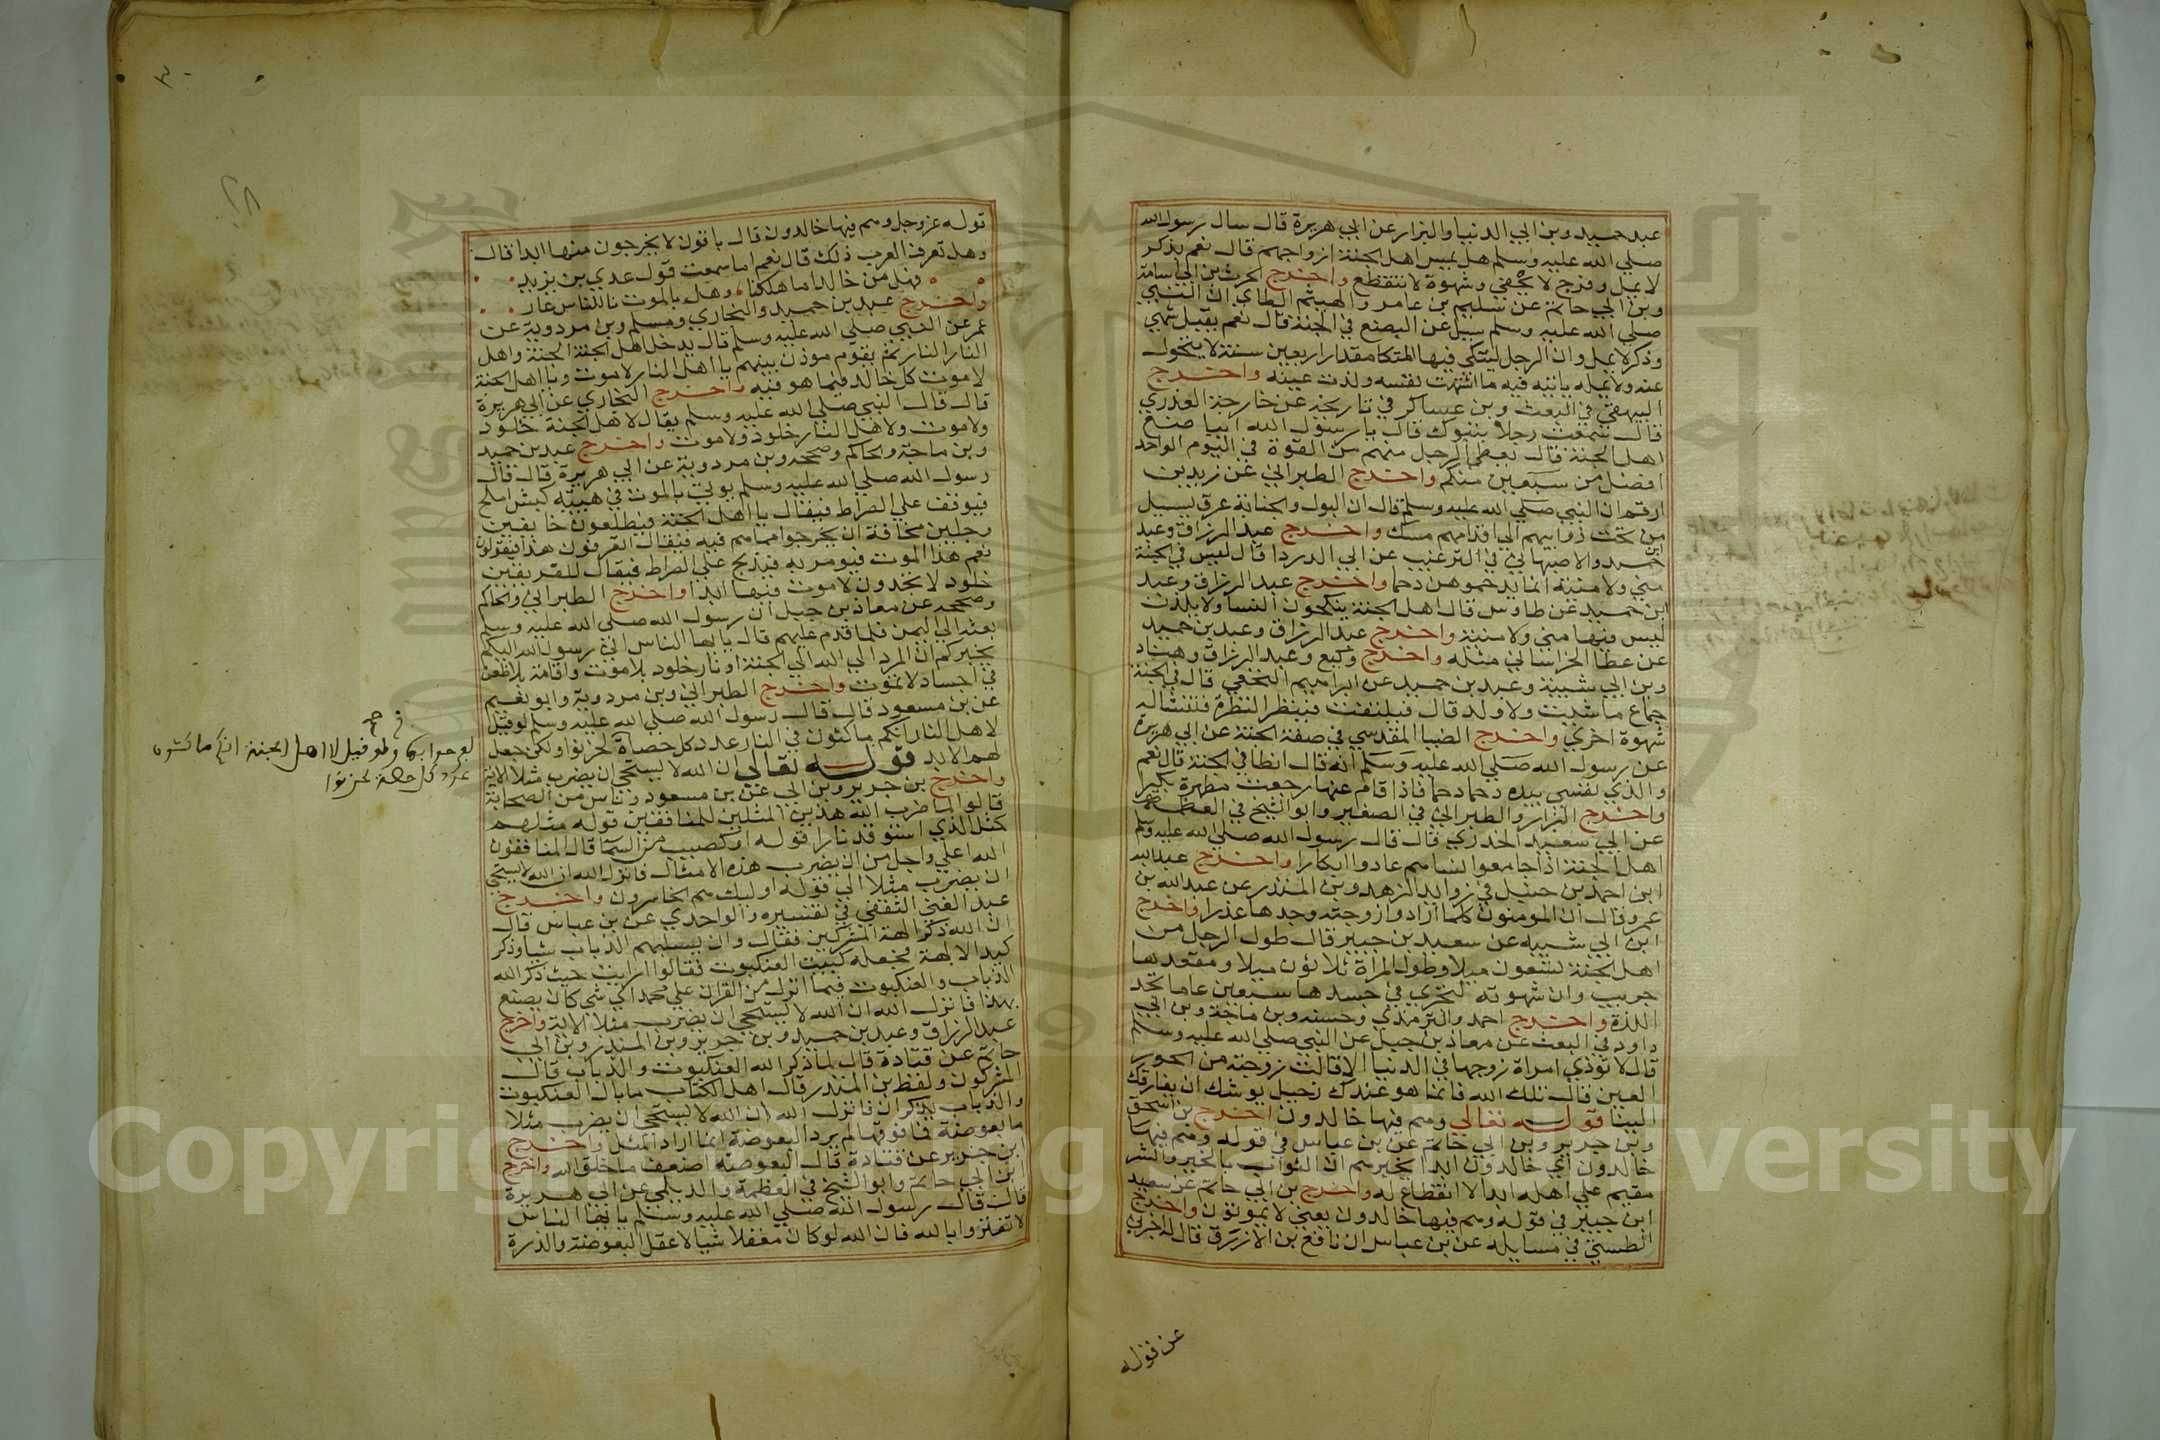 عبد حميد وبن ابي الدنيا والبزار عن ابي هريرة قال سال رسول الله
صلي الله عليه وسلم هل يمس اهل الجنة ازواجهم قال نعم بذكر
لا يمل وفرج لا يحفي وشهوة لا تنقطع واخرج الحرث بن ابي اسامة
وبن ابي حاتم عن سليم بن عامر والهيثم الطاي ان النبي
صلي الله عليه وسلم سيل عن البضع في الجنة قال نعم بقبل شهي
وذكر لا يمل وان الرجل ليتكي فيها المتكا مقدار اربعين سنة لا يتحول
عنه ولا يمله ياتيه فيه ما اشتهت نفسه ولذت عينه واخرج
البيهقي في البعث وبن عساكر في تاريخه عن خارجة العذري
قال سمعت رجلا بتبوك قال يا رسول الله ايباضع
اهل الجنة قال يعطي الرجل منهم من القوة في اليوم الواحد
افضل من سبعين منكم واخرج الطبراني عن زيد بن
ارقم ان النبي صلي الله عليه وسلم قال ان البول والجنابة عرق يسيل
من تحت ذوايبهم الي اقدامهم مسك واخرج عبد الرزاق وعبد
ابن حميد والاصبهاني في الترغيب عن ابي الدردا قال ليس في الجنة
مني ولا منية انما يدحموهن دحما واخرج عبد الرزاق وعبد
ابن حميد عن طاوس قال اهل الجنة ينكحون النسا ولا يلدن
ليس فيها مني ولا منية واخرج عبد الرزاق وعبد بن حميد
عن عطا الخراساني مثله واخرج وكيع وعبد الرزاق وهناد
وبن ابي شيبة وعبد بن حميد عن ابراهيم النخعي قال في الجنة
جماع ما شيت ولا ولد قال فيلتفت فينظر النظرة فتنشا له
شهوة اخري واخرج الضيا المقدسي في صفة الجنة عن ابي هريرة
عن رسول الله صلي الله عليه وسلم انه قال انطا في الجنة قال نعم
والذي نفسي بيده دحما دحما فاذا قام عنها رجعت مطهرة بكرا
واخرج البزار والطبراني في الصغير وابو الشيخ في العظمة
عن ابي سعيد الخدري قال قال رسول الله صلي الله عليه وسلم
اهل الجنة اذا جامعوا نسا هم عادوا ابكارا واخرج عبد الله
ابن احمد بن حنبل في زوايد الزهد وبن المنذر عن عبد الله بن
عمرو قال ان المومنون كلما ارادوا زوجته وجدها عذرا واخرج
ابن ابي شيبه عن سعيد بن جبير قال طول الرجل من
اهل الجنة تسعون ميلا وطول المراة ثلاثون ميلا ومقعدتها
جريب وان شهوته لتجري في جسدها سبعين عاما تجد
اللذة واخرج احمد والترمذي وحسنه وبن ماجة وبن ابي
داود في البعث عن معاذ بن جبل عن النبي صلي الله عليه وسلم
قال لا توذي امراة زوجها في الدنيا الا قالت زوجته من الحور
العين قاتلك الله فانما هو عندك دخيل يوشك ان يفارقك
الينا قوله تعالي وهم فيها خالدون اخرج بن اسحق
وبن جرير وبن ابي حاتم عن بن عباس في قوله وهم فيها
خالدون اي خالدون ابدا يخبرهم ان الثواب بالخير والشر
مقيم علي اهله ابدا لا انقطاع له واخرج بن ابي حاتم عن سعيد
ابن جبير في قوله وهم فيها خالدون يعني لا يموتون واخرج
الطستي في مسايله عن بن عباس ان نافع بن الازرق قال له اخبرني
عن قوله
قوله عز وجل وهم فيها خالدون قال باقون لا يخرجون منها ابدا قال
وهل تعرف العرب ذلك قال نعم اما سمعت قول عدي بن يزيد
فهل من خالد اما هلكنا وهل بالموت يا للناس عار
واخرج عبد بن حميد والبخاري ومسلم وبن مردوية عن
عمر عن النبي صلي الله عليه وسلم قال يدخل اهل الجنة الجنة واهل
النار النار ثم يقوم موذن بينهم يا اهل النار لا موت ويا اهل الجنة
لا موت كل خالد فيما هو فيه واخرج البخاري عن ابي هريرة
قال قال النبي صلي الله عليه وسلم يقال لاهل الجنة خلود
ولا موت ولاهل النار خلود ولا موت واخرج عبد بن حميد
وبن ماجة والحاكم وصححه وبن مردوية عن ابي هريرة قال قال
رسول الله صلي الله عليه وسلم يوتي بالموت في هيية كبش املح
فيوقف علي الصراط فيقال يا اهل الجنة فيطلعون خايفين
وجلين مخافة ان يخرجوا مما هم فيه فيقال اتعرفون هذا فيقولون
نعم هذا الموت فيومر به فيذبح علي الصراط فيقال للفريقين
خلود لا تجدون لا موت فيها ابدا واخرج الطبراني والحاكم
وصححه عن معاذ بن جبل ان رسول الله صلي الله عليه وسلم
بعثه الي اليمن فلما قدم عليهم قال يا ايها الناس اني رسول رسول الله اليكم
يخبركم ان المرد الي الله الي الجنة او نار خلود بلا موت واقامة بلا ظعن
في اجساد لا تموت واخرج الطبراني وبن مردوية وابو نعيم
عن بن مسعود قال قال رسول الله صلي الله عليه وسلم لو قيل
لاهل النار انكم ماكثون في النار عدد كل حصاة لحزنوا ولكن جعل
لهم الابد قوله تعالي ان الله لا يستحي ان يضرب مثلا الاية
واخرج بن جرير وبن ابي عن بن مسعود وناس من الصحابة
قالوا لما ضرب الله هذين المثلين للمنافقين قوله مثلهم
كمثل الذي استوقد نارا قوله او كصيب من السما قال المنافقون
الله اعلي واجل من ان يضرب هذه الامثال فانزل الله ان الله لا يستحي
ان يضرب مثلا الي قوله اوليك هم الخاسرون واخرج
عبد الغني الثقفي في تفسيره والواحدي عن بن عباس قال
ان الله ذكر الهة المشركين فقال وان يسلبهم الذباب شيا وذكر
كيد الالهة فجعله كبيت العنكبوت فقالوا ارايت حيث ذكر الله
الذباب والعنكبوت فيما انزل من القران علي محمد اي شي كان يصنع
بهذا فانزل الله ان الله لا يستحي ان يضرب مثلا الاية واخرج
عبد الرزاق وعبد بن حميد وبن جرير وبن المنذر وبن ابي
حاتم عن قتادة قال لما ذكر الله العنكبوت والذباب قال
المشركون ولفظ بن المنذر قال اهل الكتاب ما بال العنكبوت
والذباب يذكران فانزل الله ان الله لا يستحي ان يضرب مثلا
ما بعوضة فما فوقها لم يرد البعوضة انما اراد المثل واخرج
ابن جرير عن قتادة قال البعوضه اضعف ما خلق الله واخرج
ابن ابي حاتم وابو الشيخ في العظمة والديلمي عن ابي هريرة
قال قال رسول الله صلي الله عليه وسلم يا ايها الناس
لا تغتروا بالله فان الله لو كان مغفلا شيا لاغفل البعوضة والذرة
ولو قيل لاهل الجنة انكم ماكثون
عدد كل حصاة لحزنوا
٣٠
٢٨
Copyright King Saud University